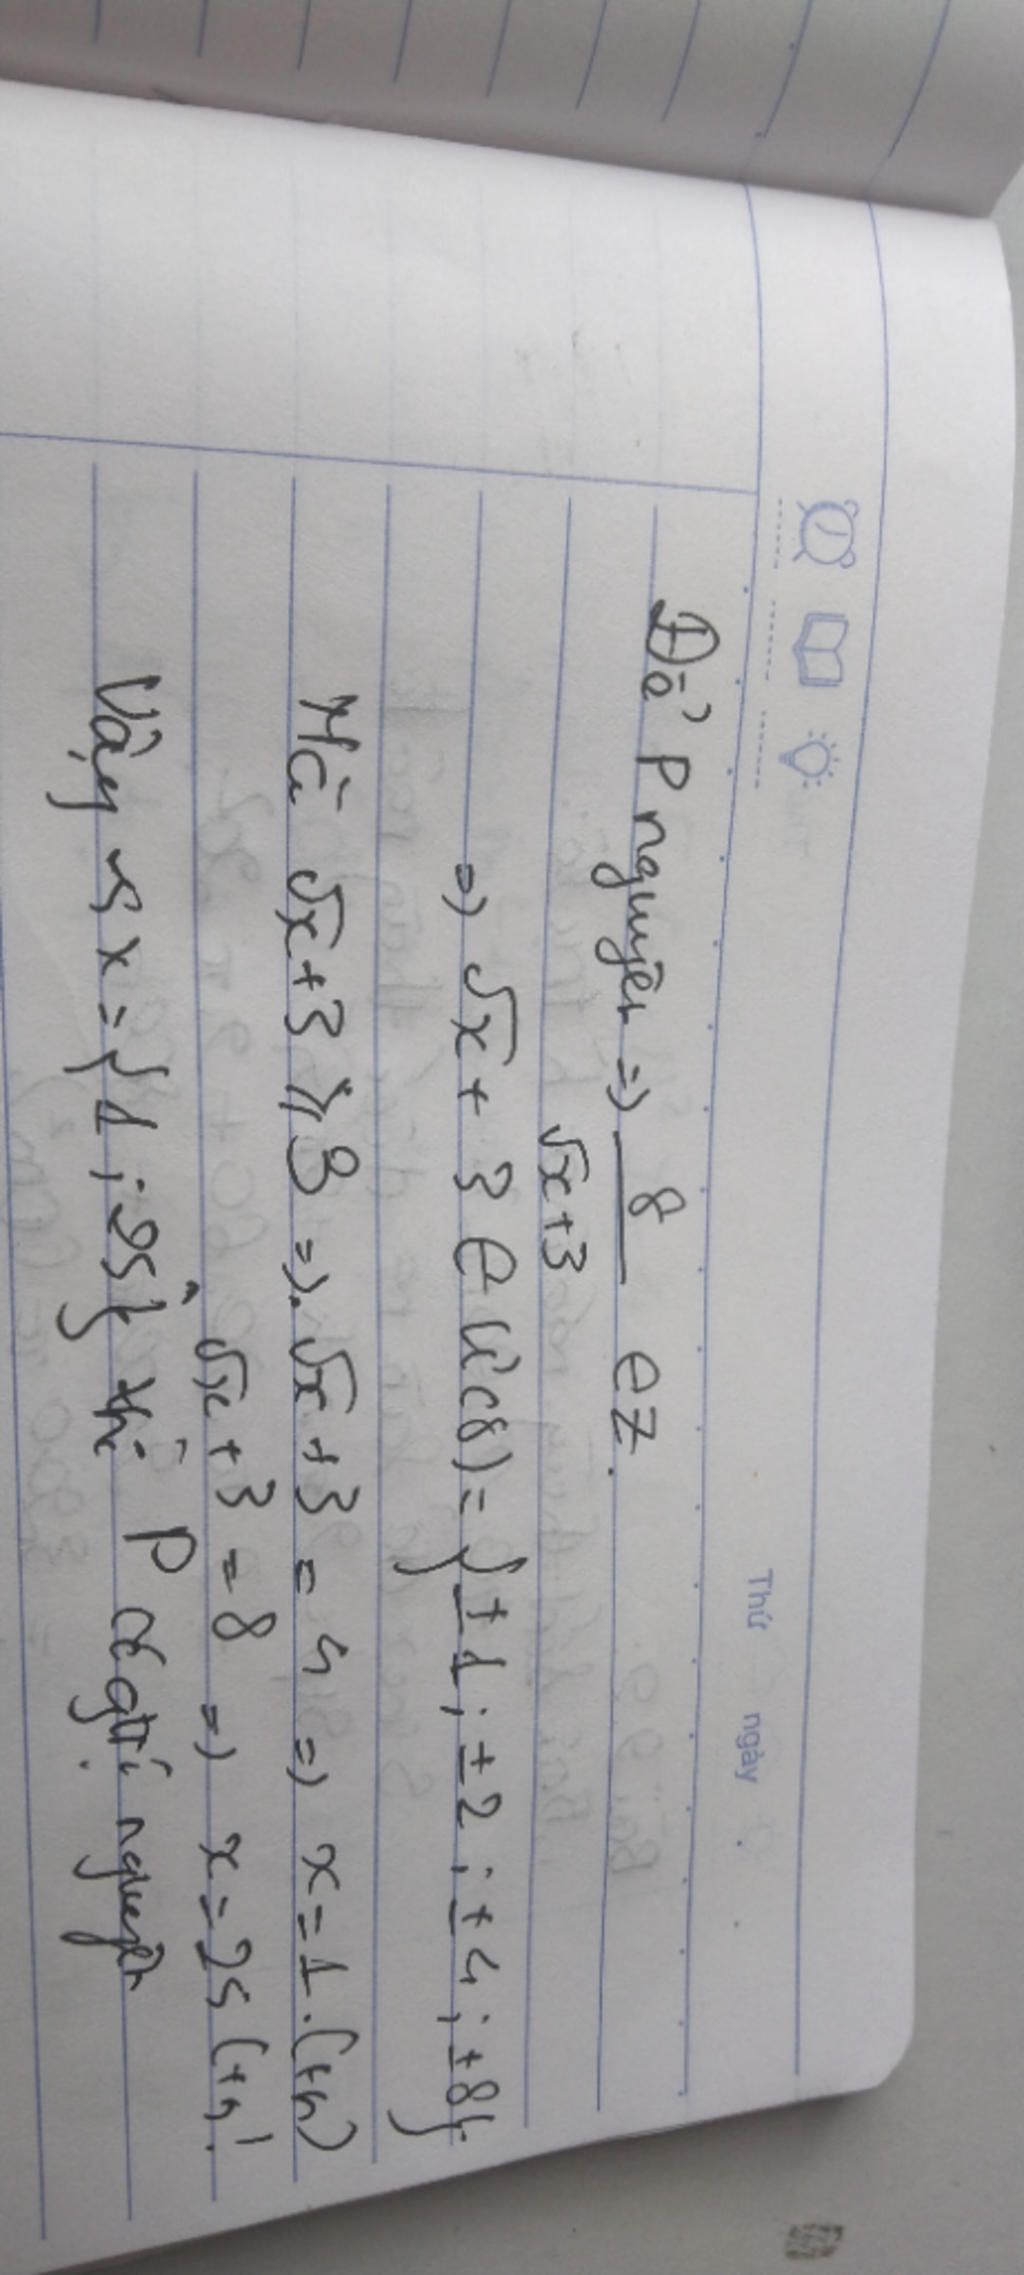 Thứ ngày
Để P nguyên => 8/(√x+3) ∈ Z
=> √x + 3 ∈ Ư(8) = {±1; ±2; ±4; ±8}
Mà √x+3 ⩾ 3 => √x+3 = 4 => x=1 (tm)
√x+3 = 8 => x=25 (tm)
Vậy x={1; 25} thì P có gtrị nguyên